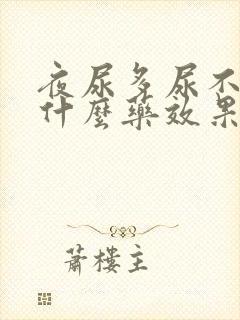 夜尿多尿不
什麼藥效果
蕭樓主